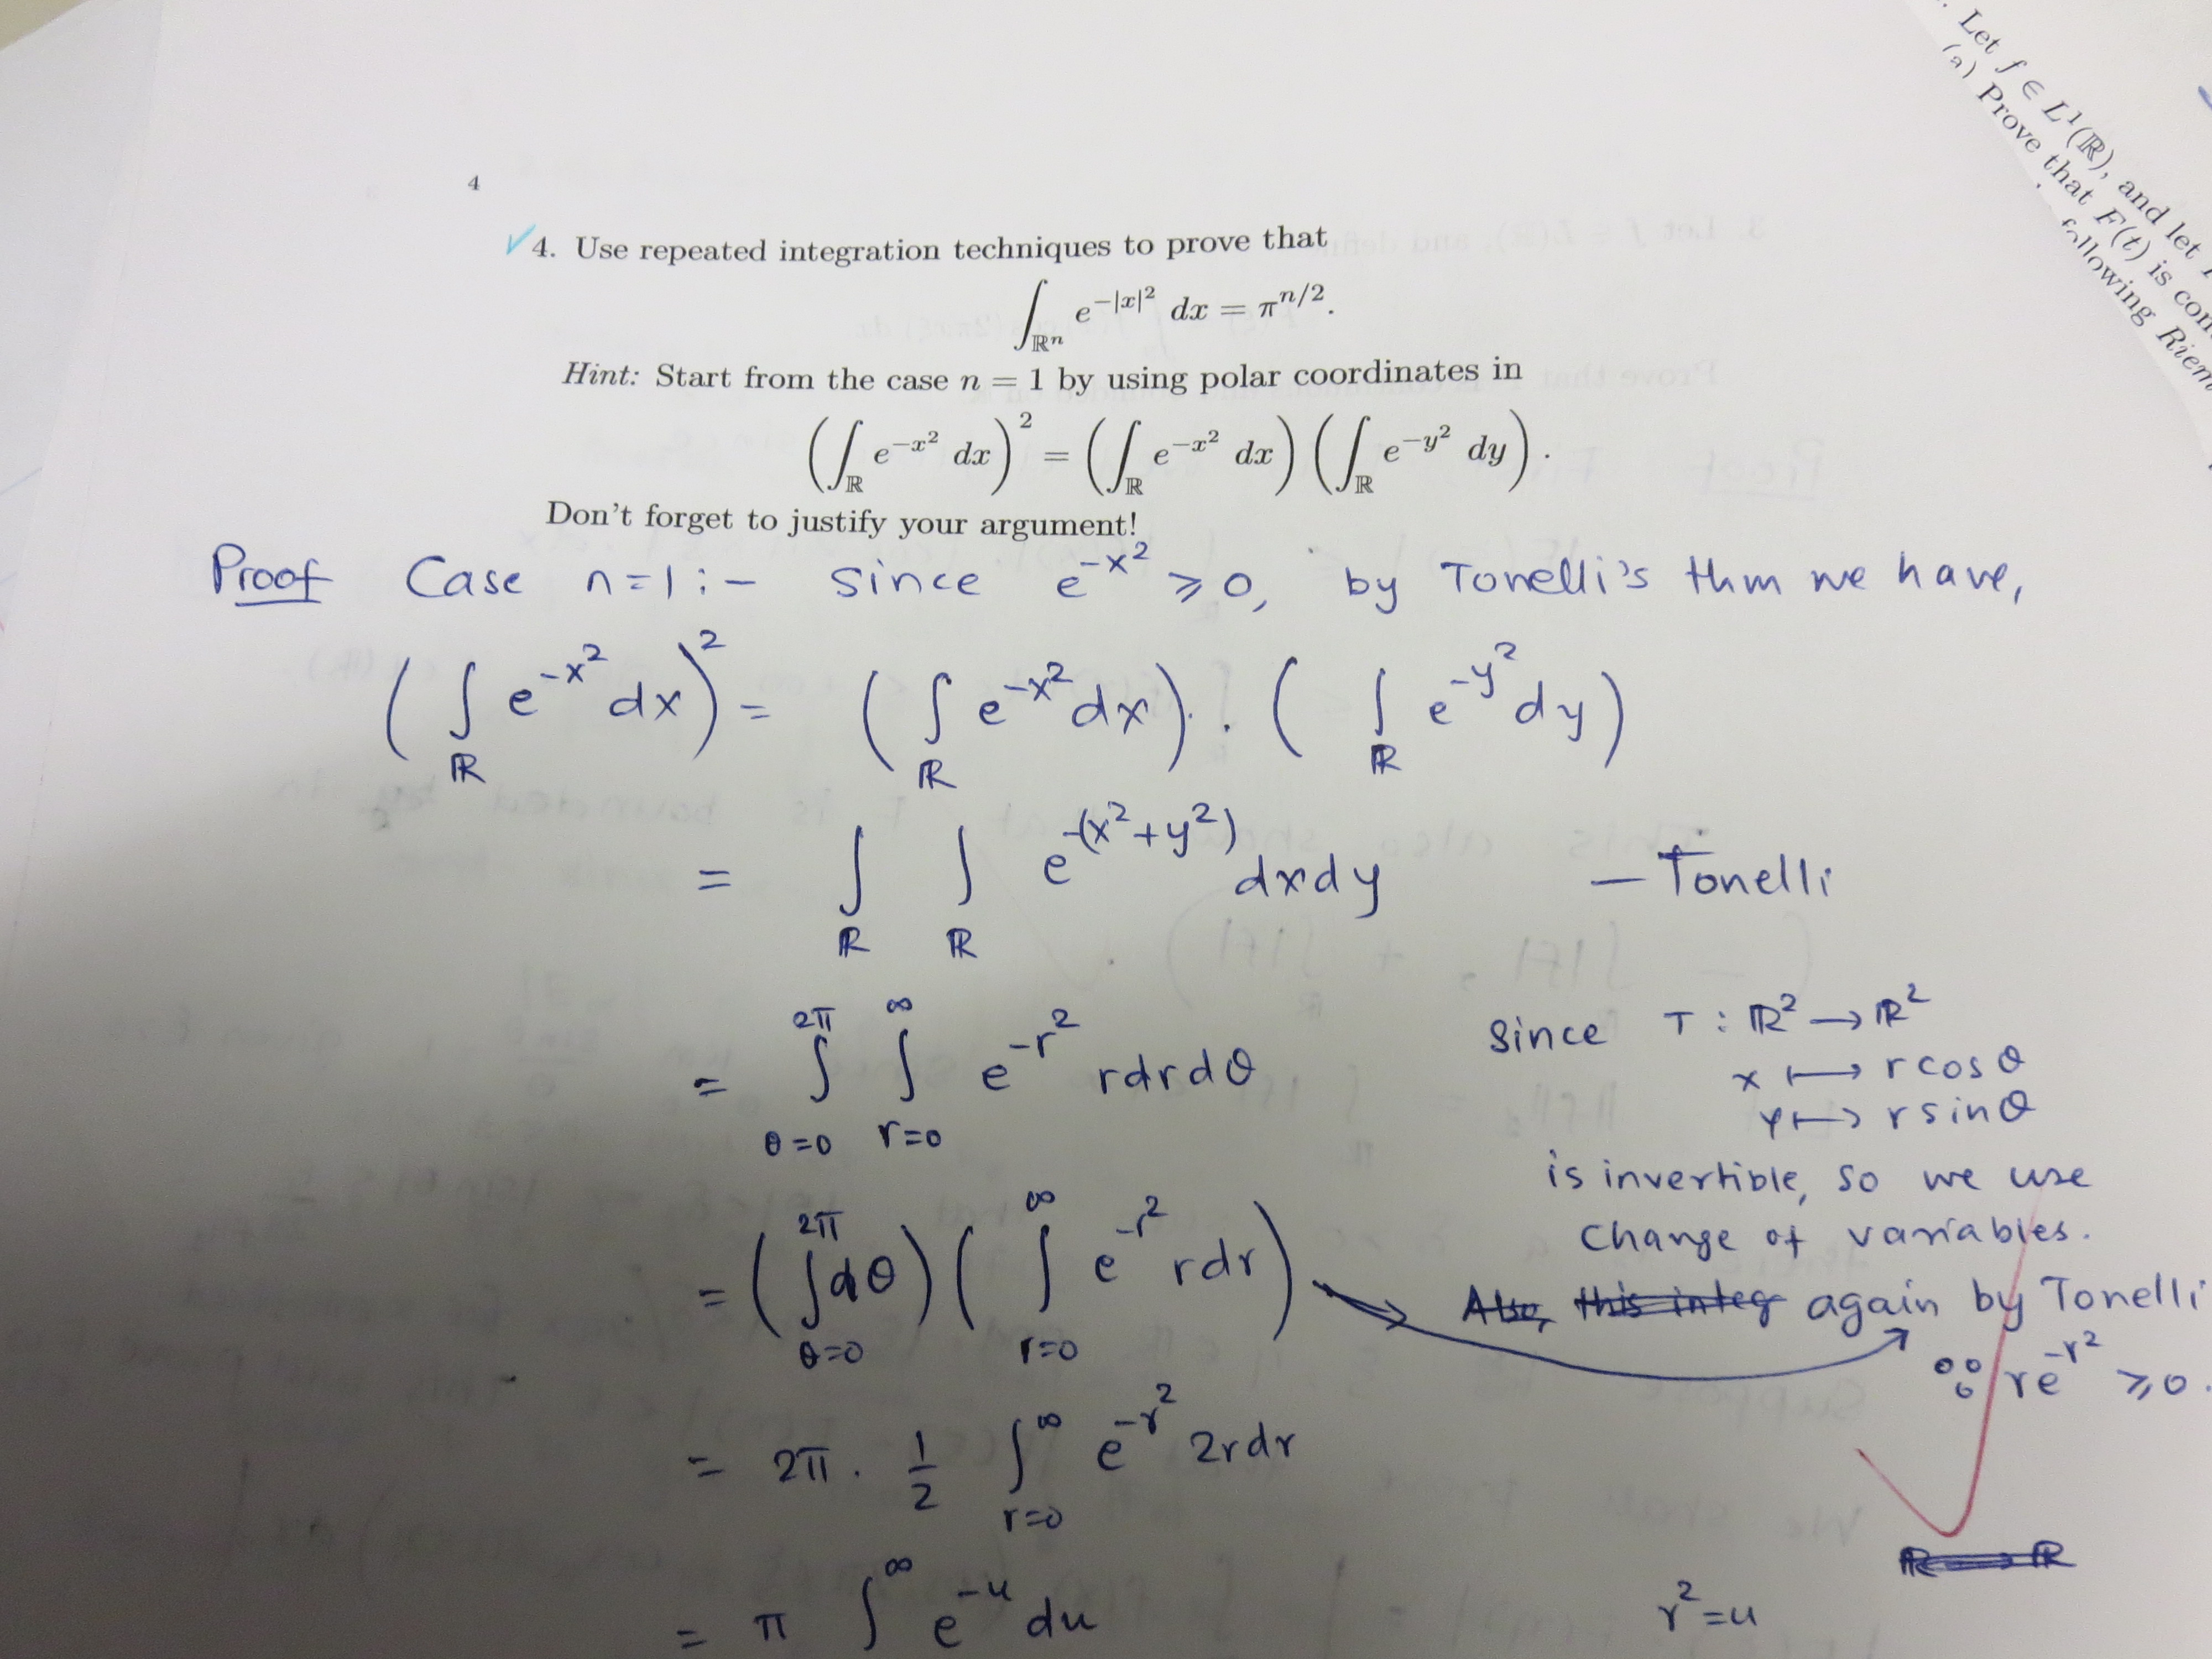 4
✓4. Use repeated integration techniques to prove that
∫_{ℝⁿ} e^{-|x|²} dx = π^{n/2}.
Hint: Start from the case n = 1 by using polar coordinates in
(∫_ℝ e^{-x²} dx)² = (∫_ℝ e^{-x²} dx)(∫_ℝ e^{-y²} dy).
Don't forget to justify your argument!
Proof Case n=1 :- Since e^{-x²} ≥ 0, by Tonelli's thm we have,
(∫_ℝ e^{-x²} dx)² = (∫_ℝ e^{-x²} dx) · (∫_ℝ e^{-y²} dy)
= ∫_ℝ ∫_ℝ e^{-(x²+y²)} dxdy — Tonelli
= ∫_{θ=0}^{2π} ∫_{r=0}^{∞} e^{-r²} rdrdθ
Since T : ℝ² → ℝ²
x ↦ r cosθ
y ↦ r sinθ
is invertible, so we use
Change of variables.
= (∫_{θ=0}^{2π} dθ)(∫_{r=0}^{∞} e^{-r²} rdr)
Also, this integ again by Tonelli
∵ re^{-r²} ≥ 0.
= 2π · 1/2 ∫_{r=0}^{∞} e^{-r²} 2rdr
= π ∫^{∞} e^{-u} du r² = u
Let f ∈ L¹(ℝ), and let
(a) Prove that F(t) is con
following Riem